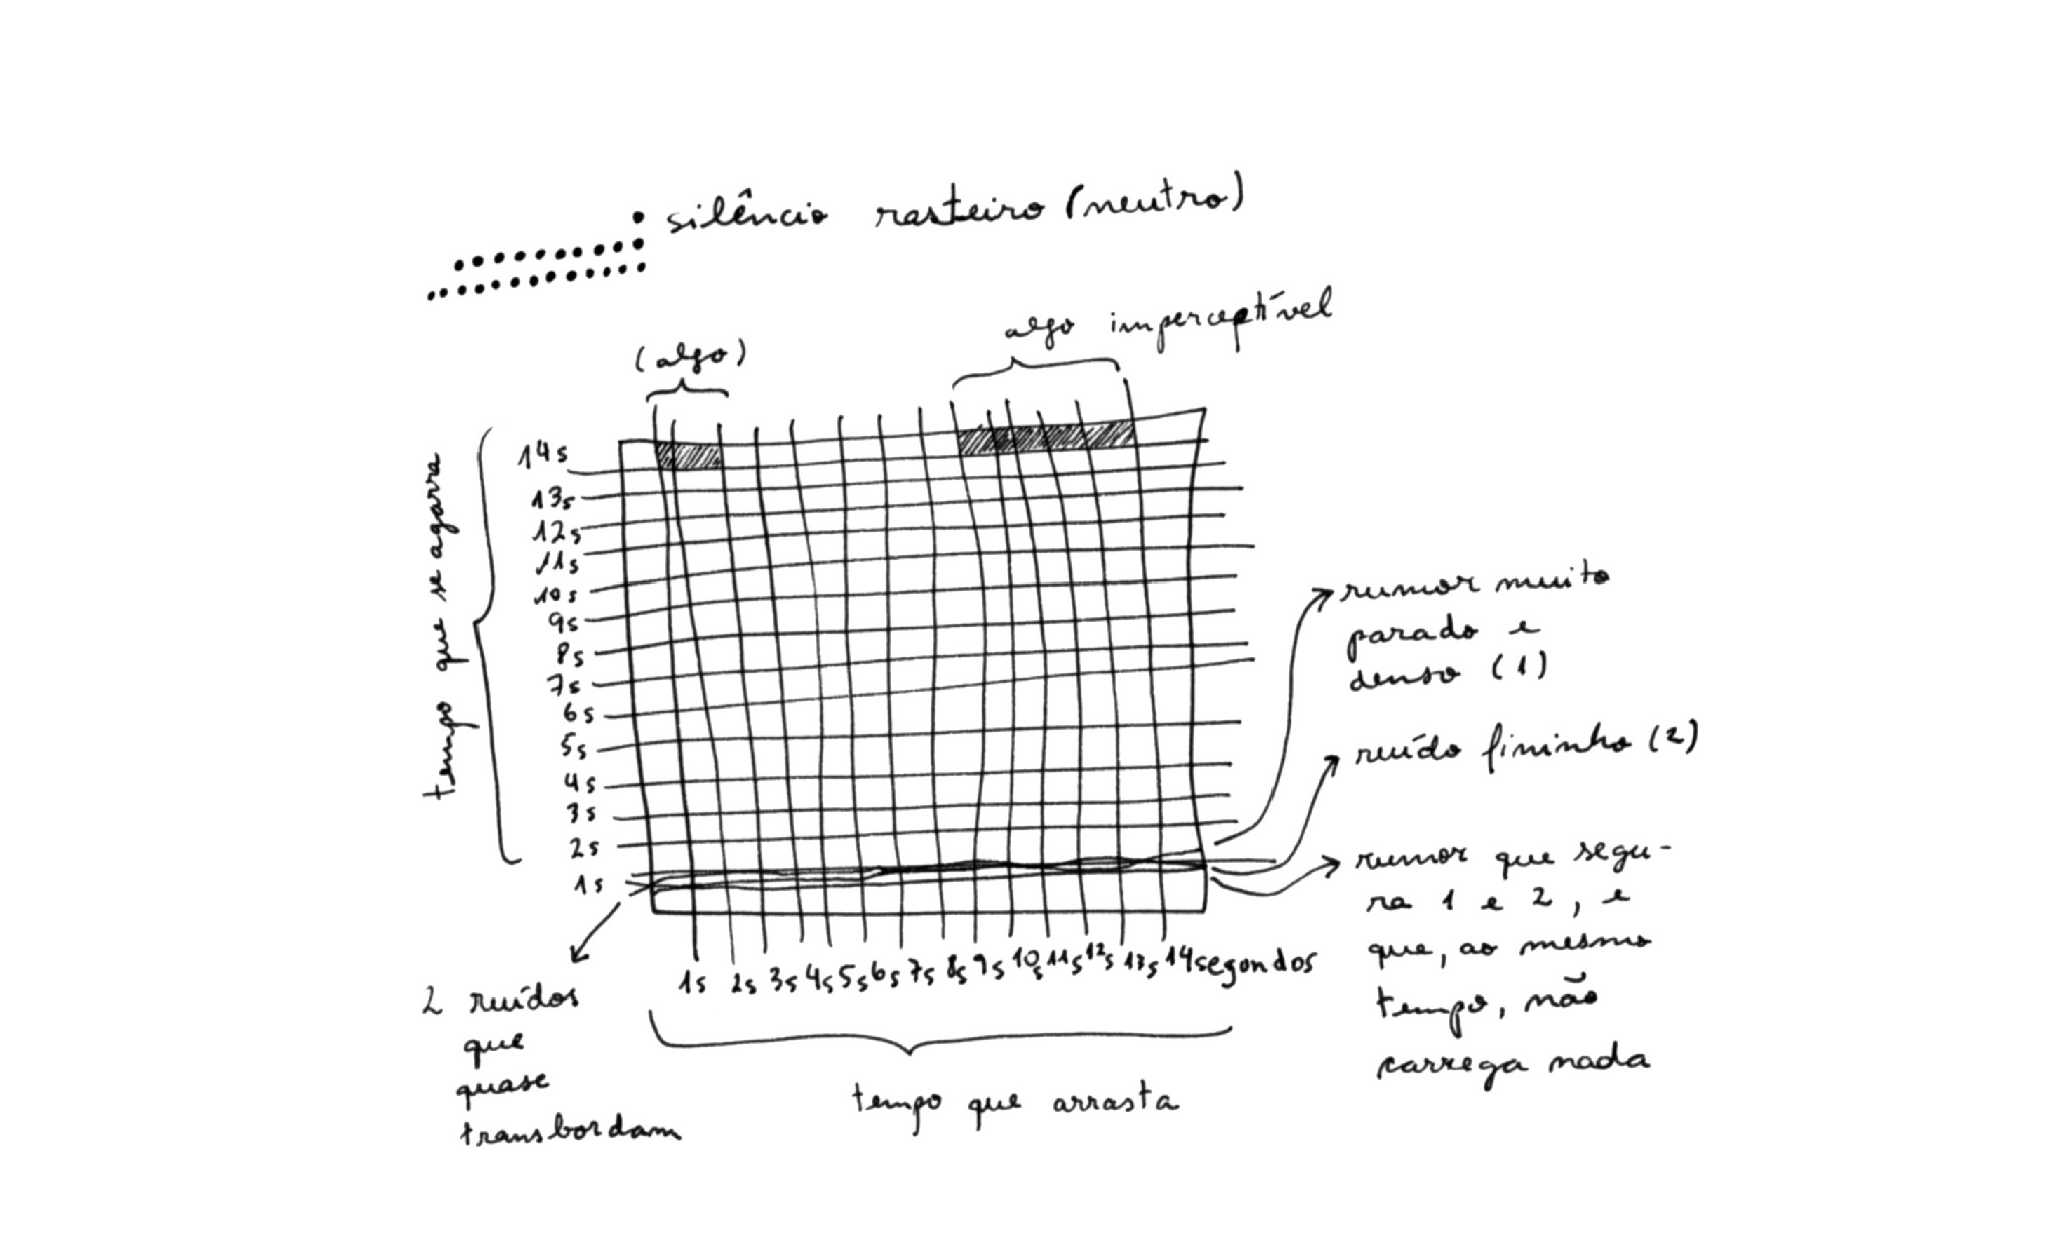 silêncio rasteiro (neutro)
(algo)
algo imperceptível
tempo que se agarra
14s
13s
12s
11s
10s
9s
8s
7s
6s
5s
4s
3s
2s
1s
1s 2s 3s 4s 5s 6s 7s 8s 9s 10s 11s 12s 13s 14segondos
tempo que arrasta
2 ruídos
que
quase
transbordam
rumor muito
parado e
denso (1)
ruído fininho (2)
rumor que segu-
ra 1 e 2, e
que, ao mesmo
tempo, não
carrega nada